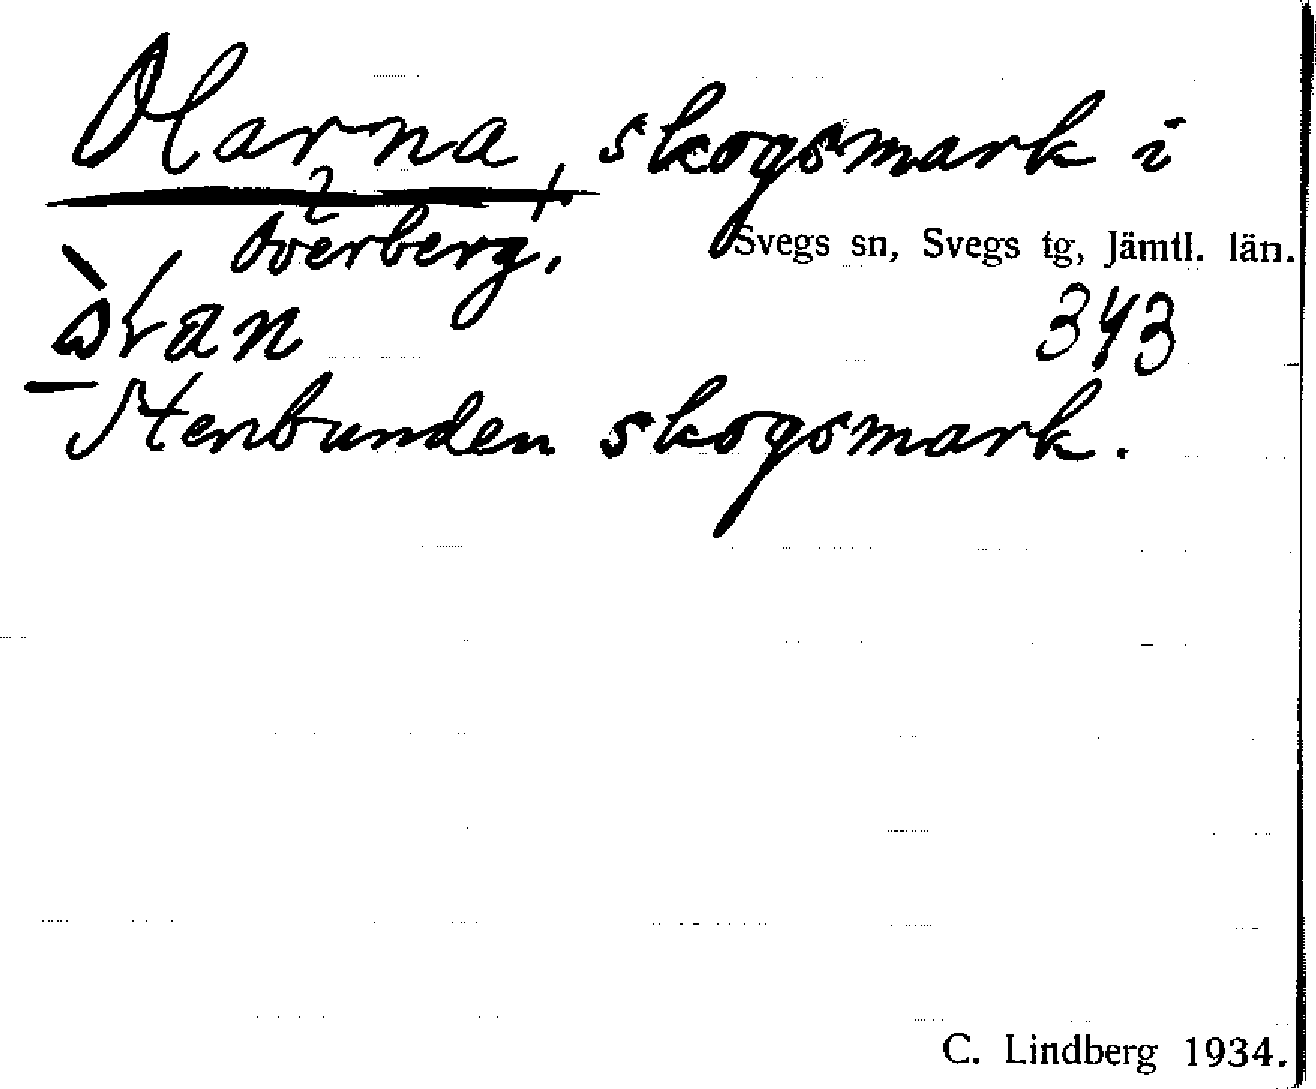 Olarna, skogsmark i
Överberg.
Svegs sn, Svegs tg, Jämtl. län.
343
Stenbunden skogsmark.
C. Lindberg 1934.